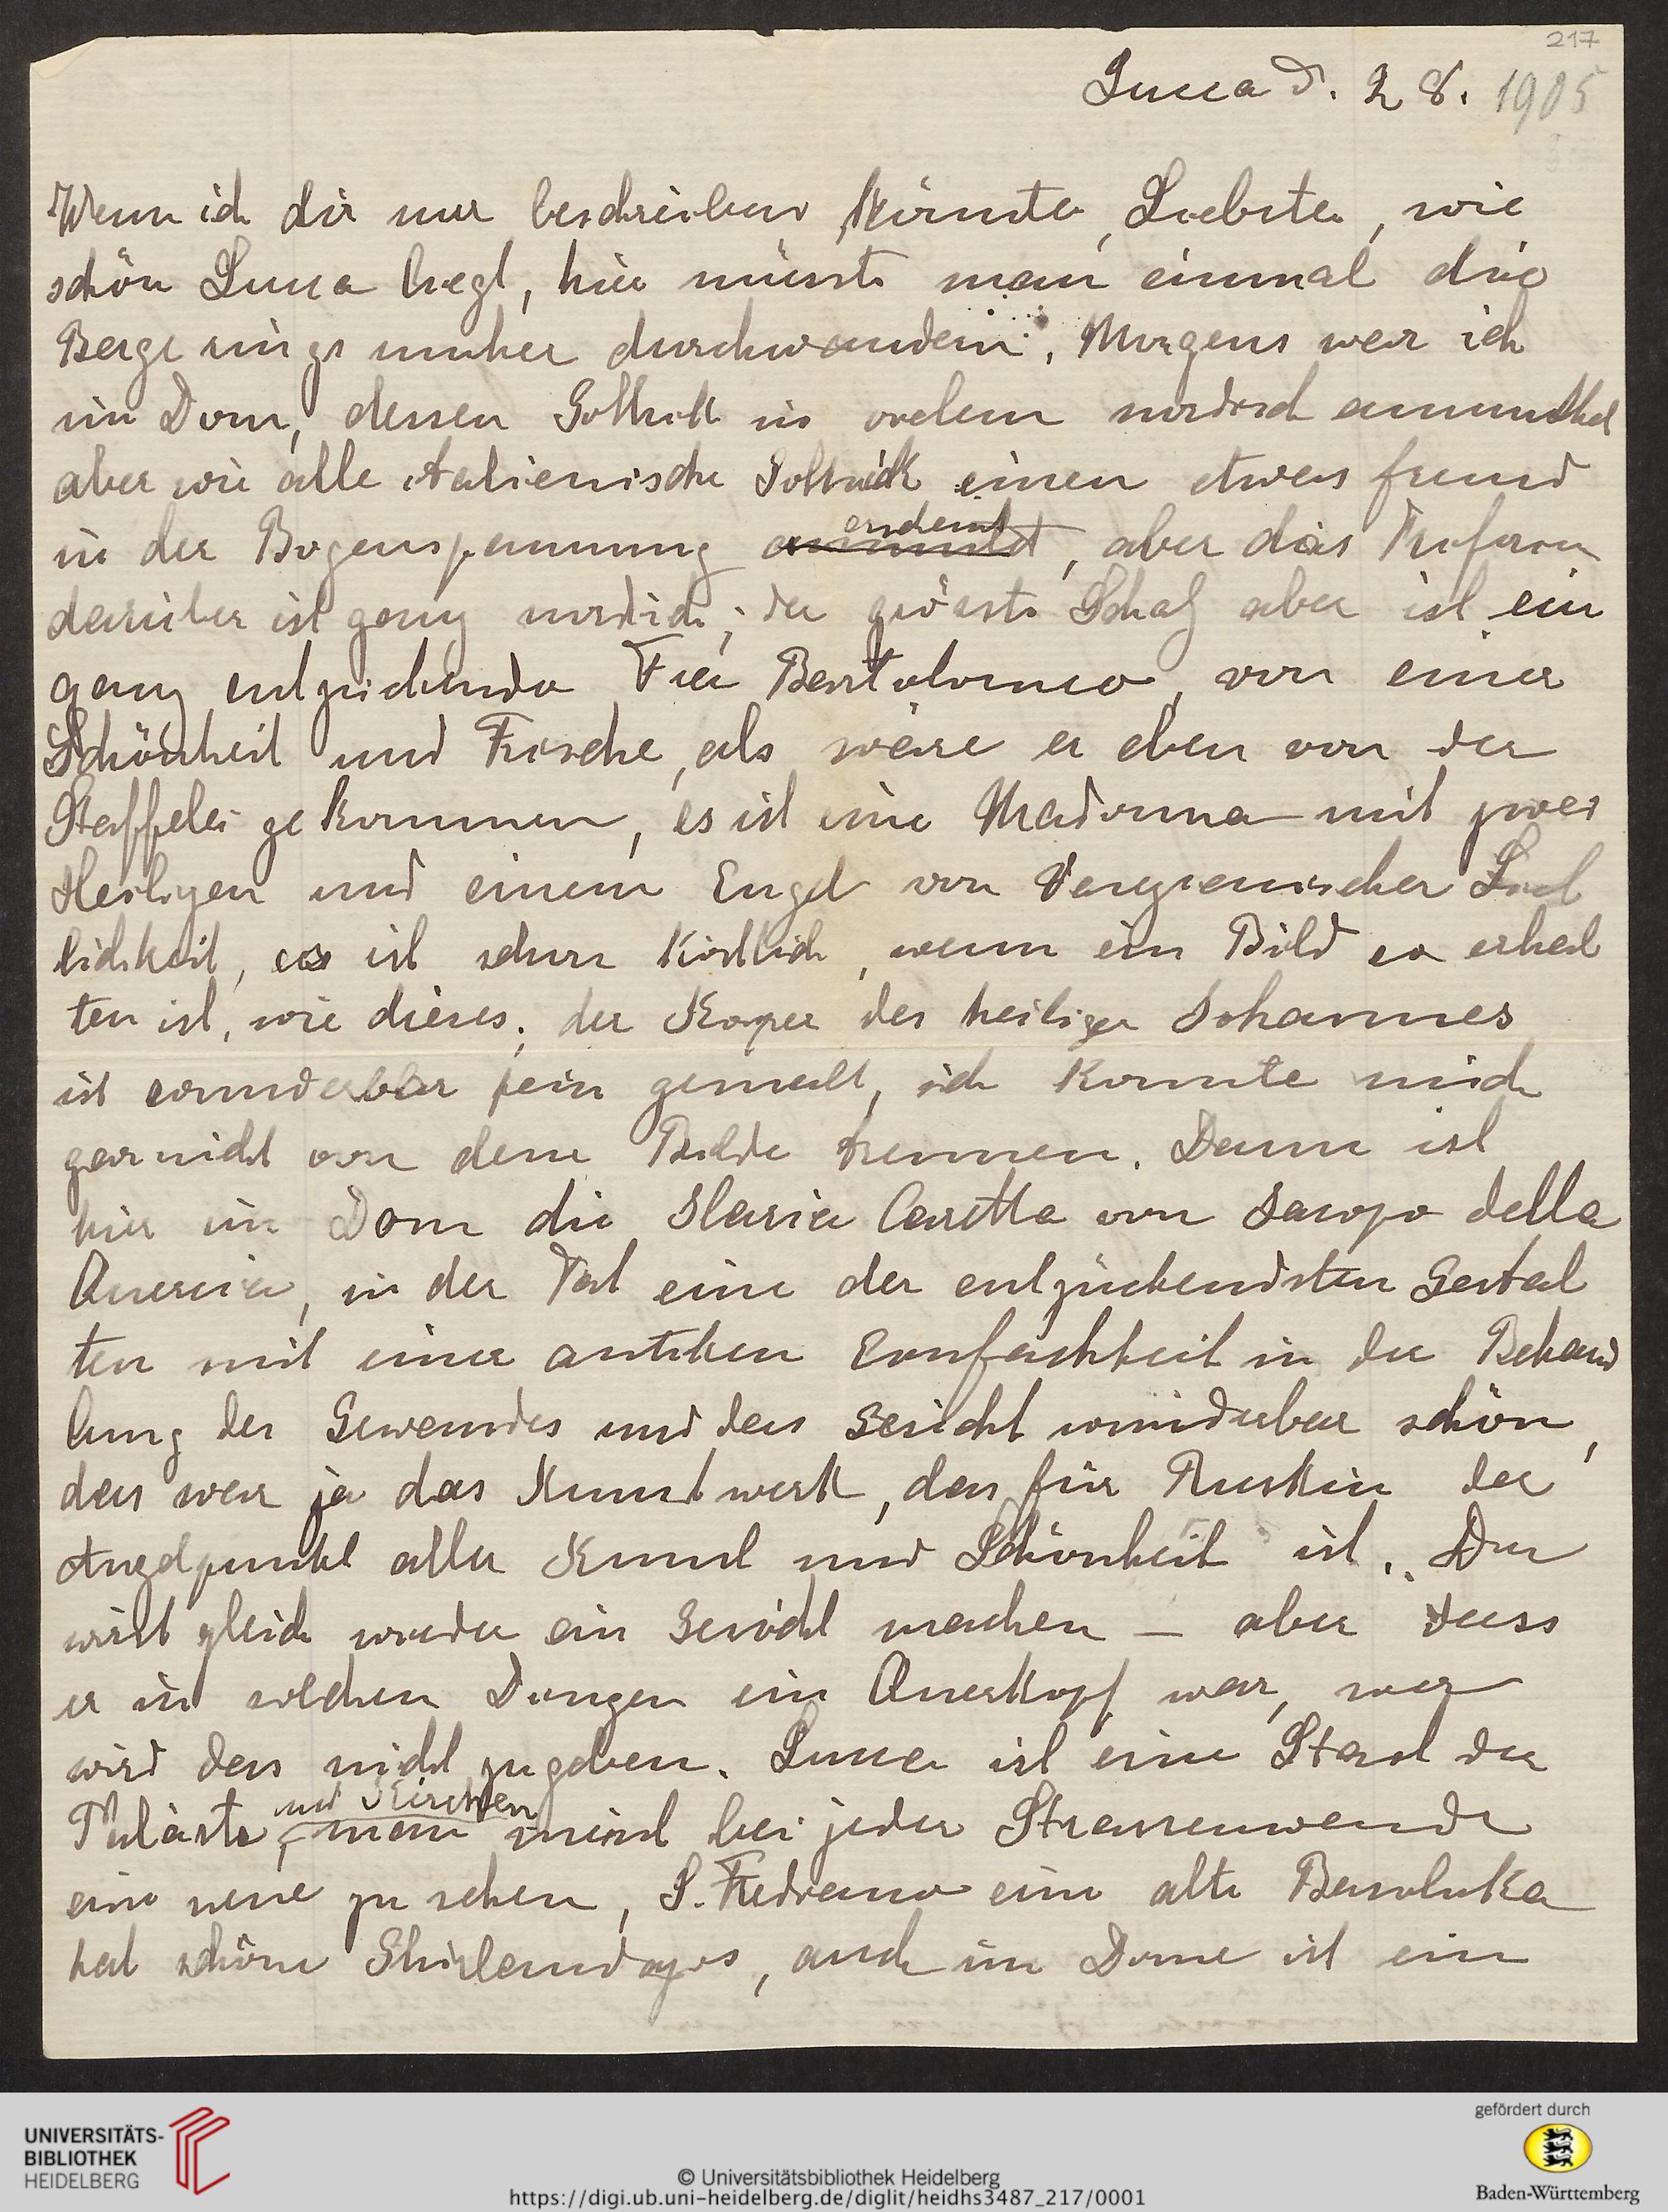 217
Lucca d. 28. 1905
Wenn ich dir nur beschreiben könnte, Liebster, wie
schön Lucca liegt, hier müsste man einmal die
Berge rings umher durchwandern. Morgens war ich
im Dom, dessen Gothik in vielem nordisch anmuthet
aber wie alle italienische Gothik einen etwas fremd
in der Bogenspannung anmutet andemt, aber das Triforium
darüber ist ganz nordisch; der grösste Schatz aber ist ein
ganz entzückender Fra Bartolomeo, von einer
Schönheit und Frische, als wäre er eben von der
Staffelei gekommen, es ist eine Madonna mit zwei
Heiligen und einem Engel von Venezianischer Lieb
lichkeit, es ist schon köstlich, wenn ein Bild so erhal
ten ist, wie dieses; der Körper des heiligen Johannes
ist wunderbar fein gemalt, ich konnte mich
garnicht von dem Bilde trennen. Dann ist
hier im Dom die Ilaria Caretto von Jacopo della
Quercia, in der Tat eine der entzückendsten Gestal
ten mit einer antiken Einfachheit in der Behand
lung des Gewandes und das Gesicht wunderbar schön,
das war ja das Kunstwerk, das für Ruskin der
Angelpunkt aller Kunst und Schönheit ist. Du
wirst gleich wieder ein Gesicht machen – aber dass
er in solchen Dingen ein Querkopf war, wer
wird das nicht zugeben. Lucca ist eine Stadt der
Paläste und Kirchen, man meint bei jeder Strassenwende
eine neue zu sehen, S. Frediano eine alte Basilika
hat schöne Ghirlandajos, auch im Dome ist ein
UNIVERSITÄTS-
BIBLIOTHEK
HEIDELBERG
© Universitätsbibliothek Heidelberg
https://digi.ub.uni-heidelberg.de/diglit/heidhs3487_217/0001
gefördert durch
Baden-Württemberg